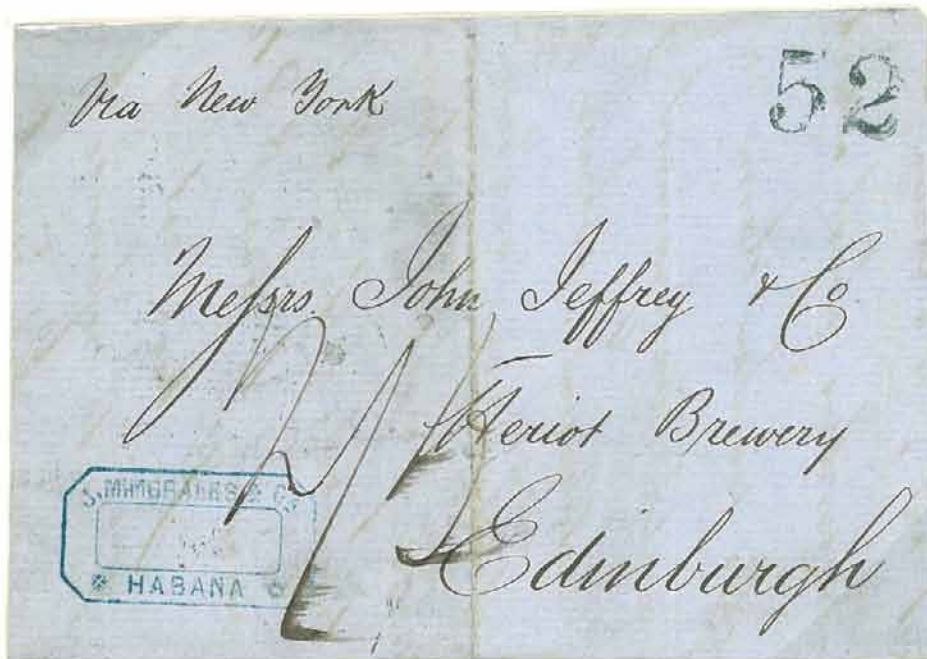 Via New York
52
Messrs. John Jeffrey & Co
Heriot Brewery
Edinburgh
HABANA